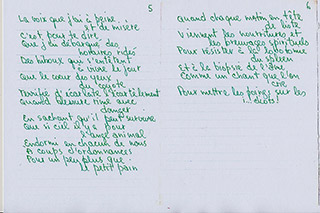 5
La voix que j'ai à peine
et de misère
c'est peut-je dire
Que j'ai débarqué des
notaires rides
Des hiboux qui s'entêtent
à vivre le jour
Que le cœur des yeux
du coyote
Terrifié j'écarlate l'écartèlement
Quand démuré rime avec
danger
En sachant qu'il peut survivre
Que si ciel il y a pour
l'ange animal
Endormi en chacun de nous
A coups d'ordonnances
Pour un peu plus que
le petit pain
6
quand chaque matin en tête
de liste
Viennent les nourritures et
les breuvages spirituels
Pour résister à l'
du spleen
Et à la biopsie de l'âme
Comme un chant que l'on
crie
Pour mettre les points sur les
idiots!